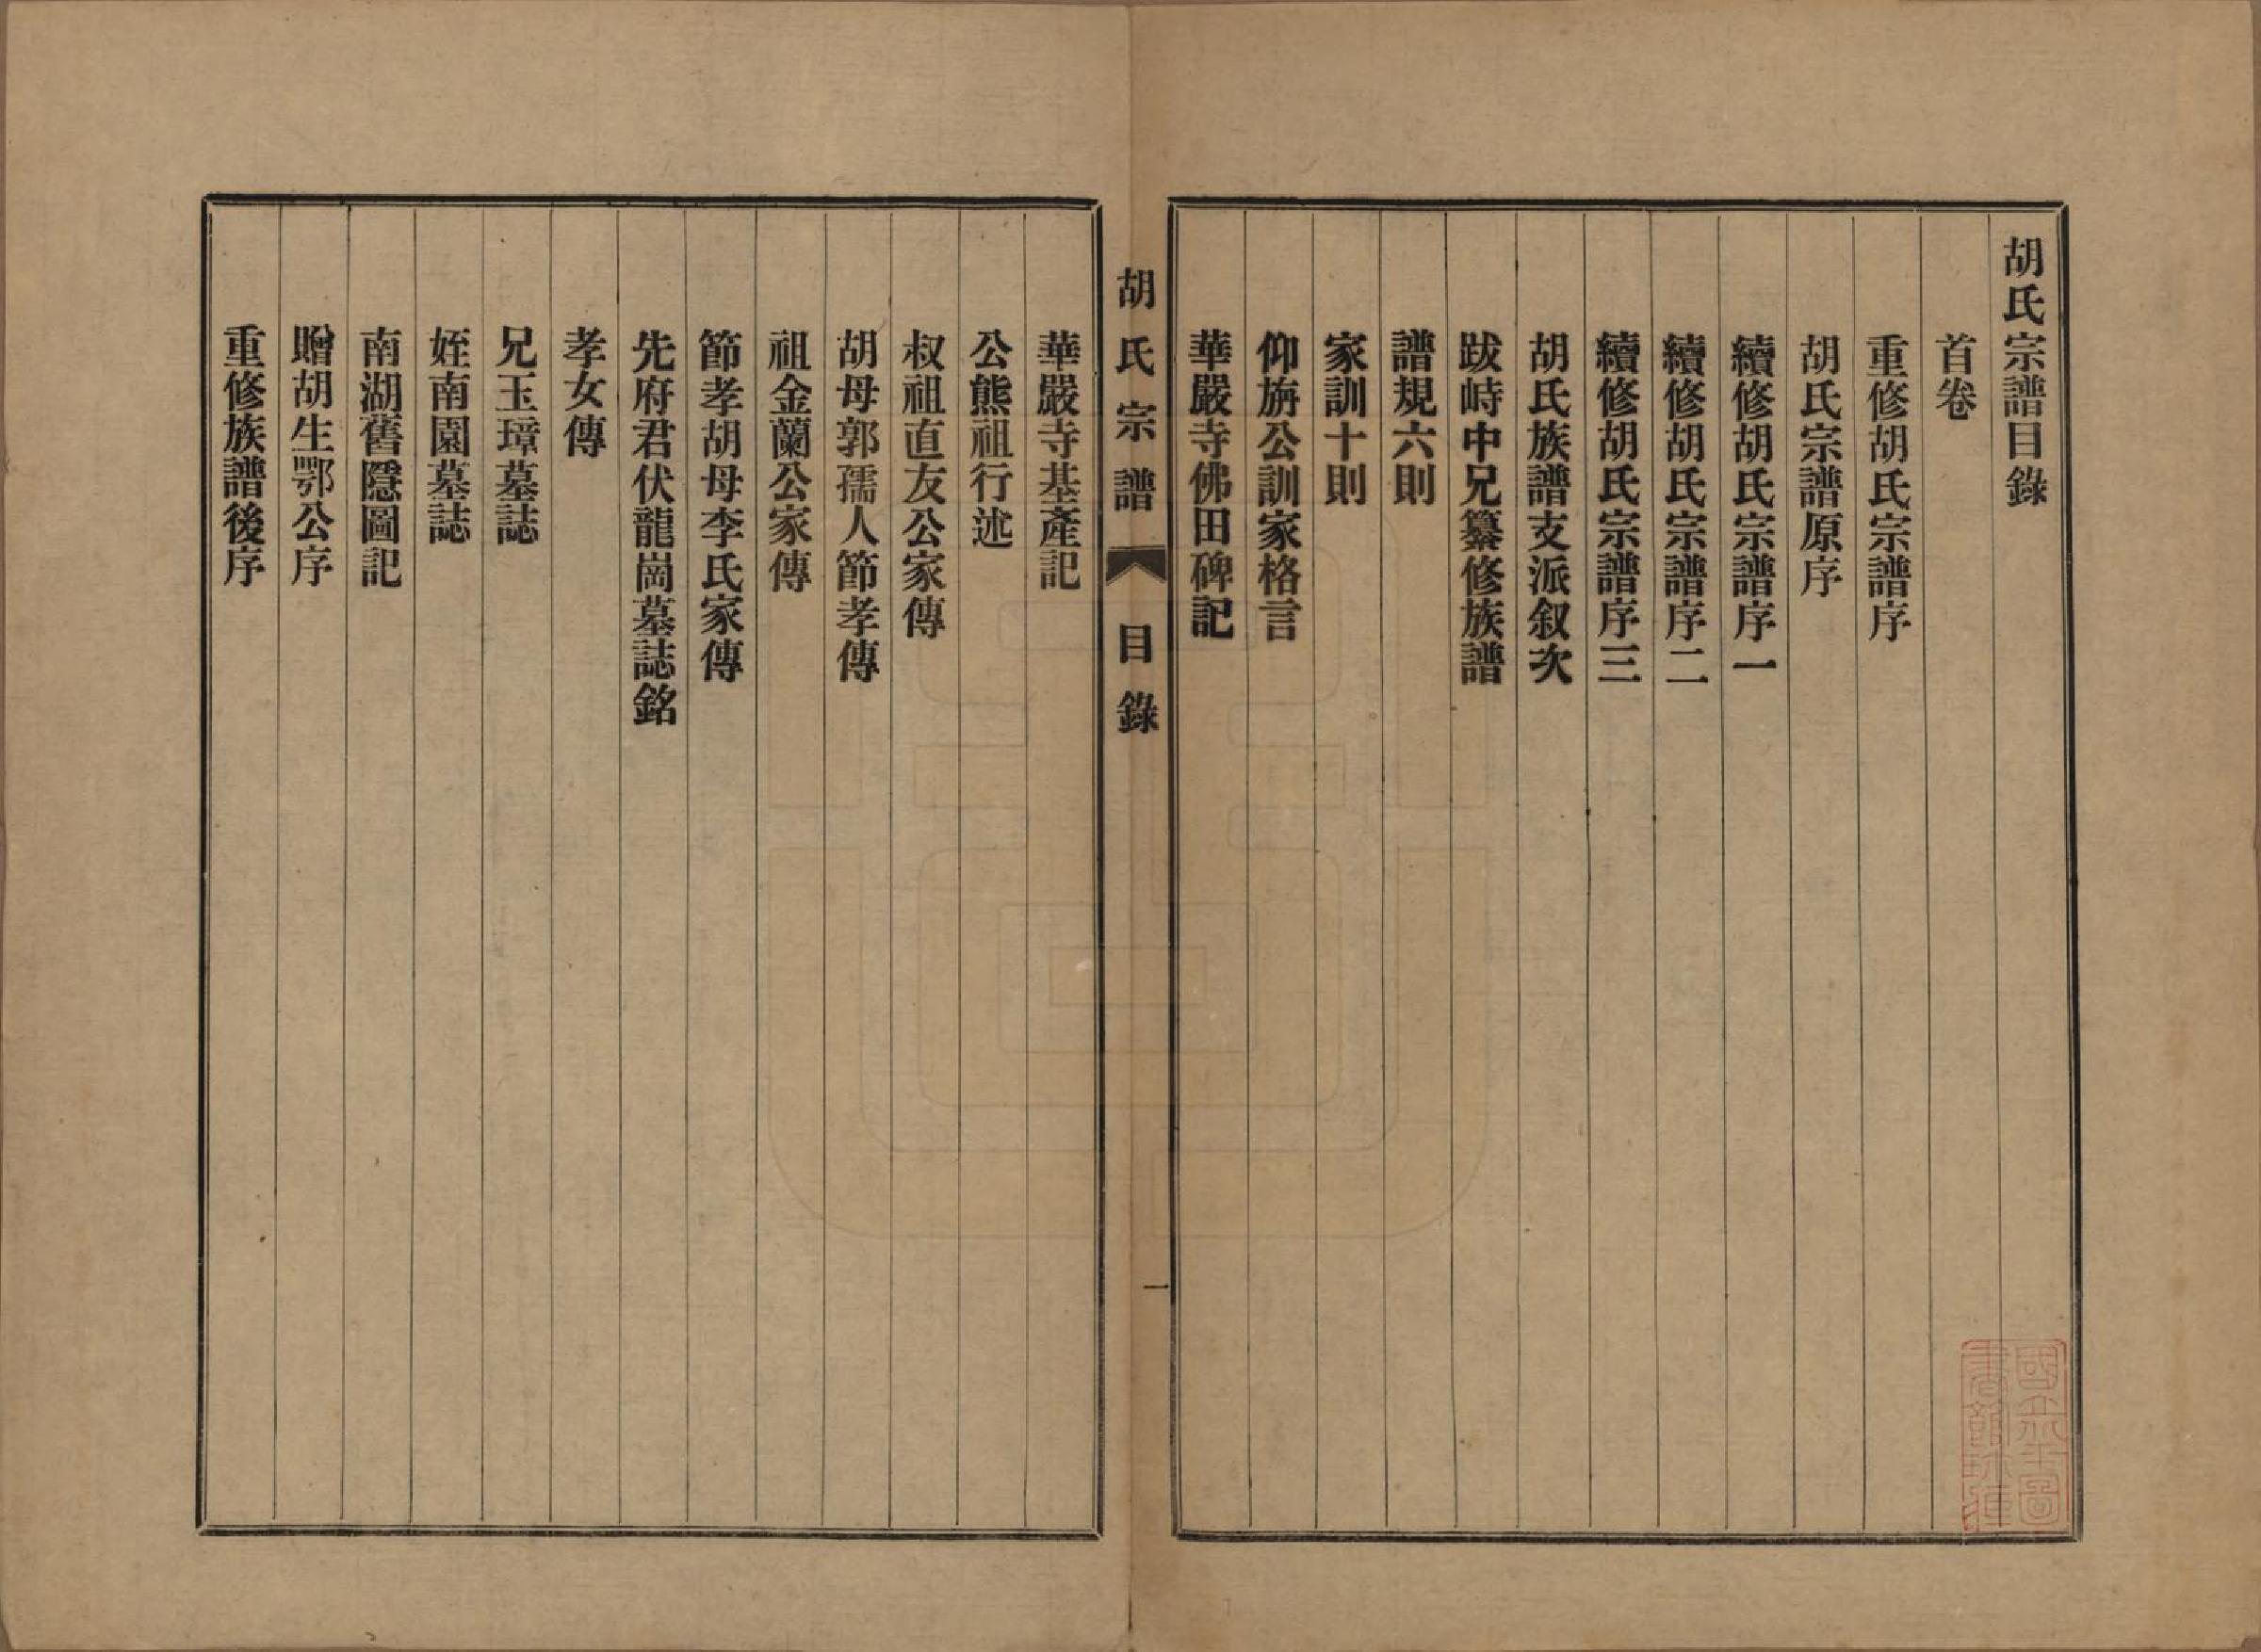 胡氏宗譜目錄
首卷
重修胡氏宗譜序
胡氏宗譜原序
續修胡氏宗譜序一
續修胡氏宗譜序二
續修胡氏宗譜序三
胡氏族譜支派叙次
跋峙中兄纂修族譜
譜規六則
家訓十則
仰旃公訓家格言
華嚴寺佛田碑記
胡氏宗譜
目錄
一
華嚴寺基產記
公熊祖行述
叔祖直友公家傳
胡母郭孺人節孝傳
祖金蘭公家傳
節孝胡母李氏家傳
先府君伏龍崗墓誌銘
孝女傳
兄玉璋墓誌
姪南園墓誌
南湖舊隱圖記
贈胡生鄂公序
重修族譜後序
國立北平圖
書館珍藏